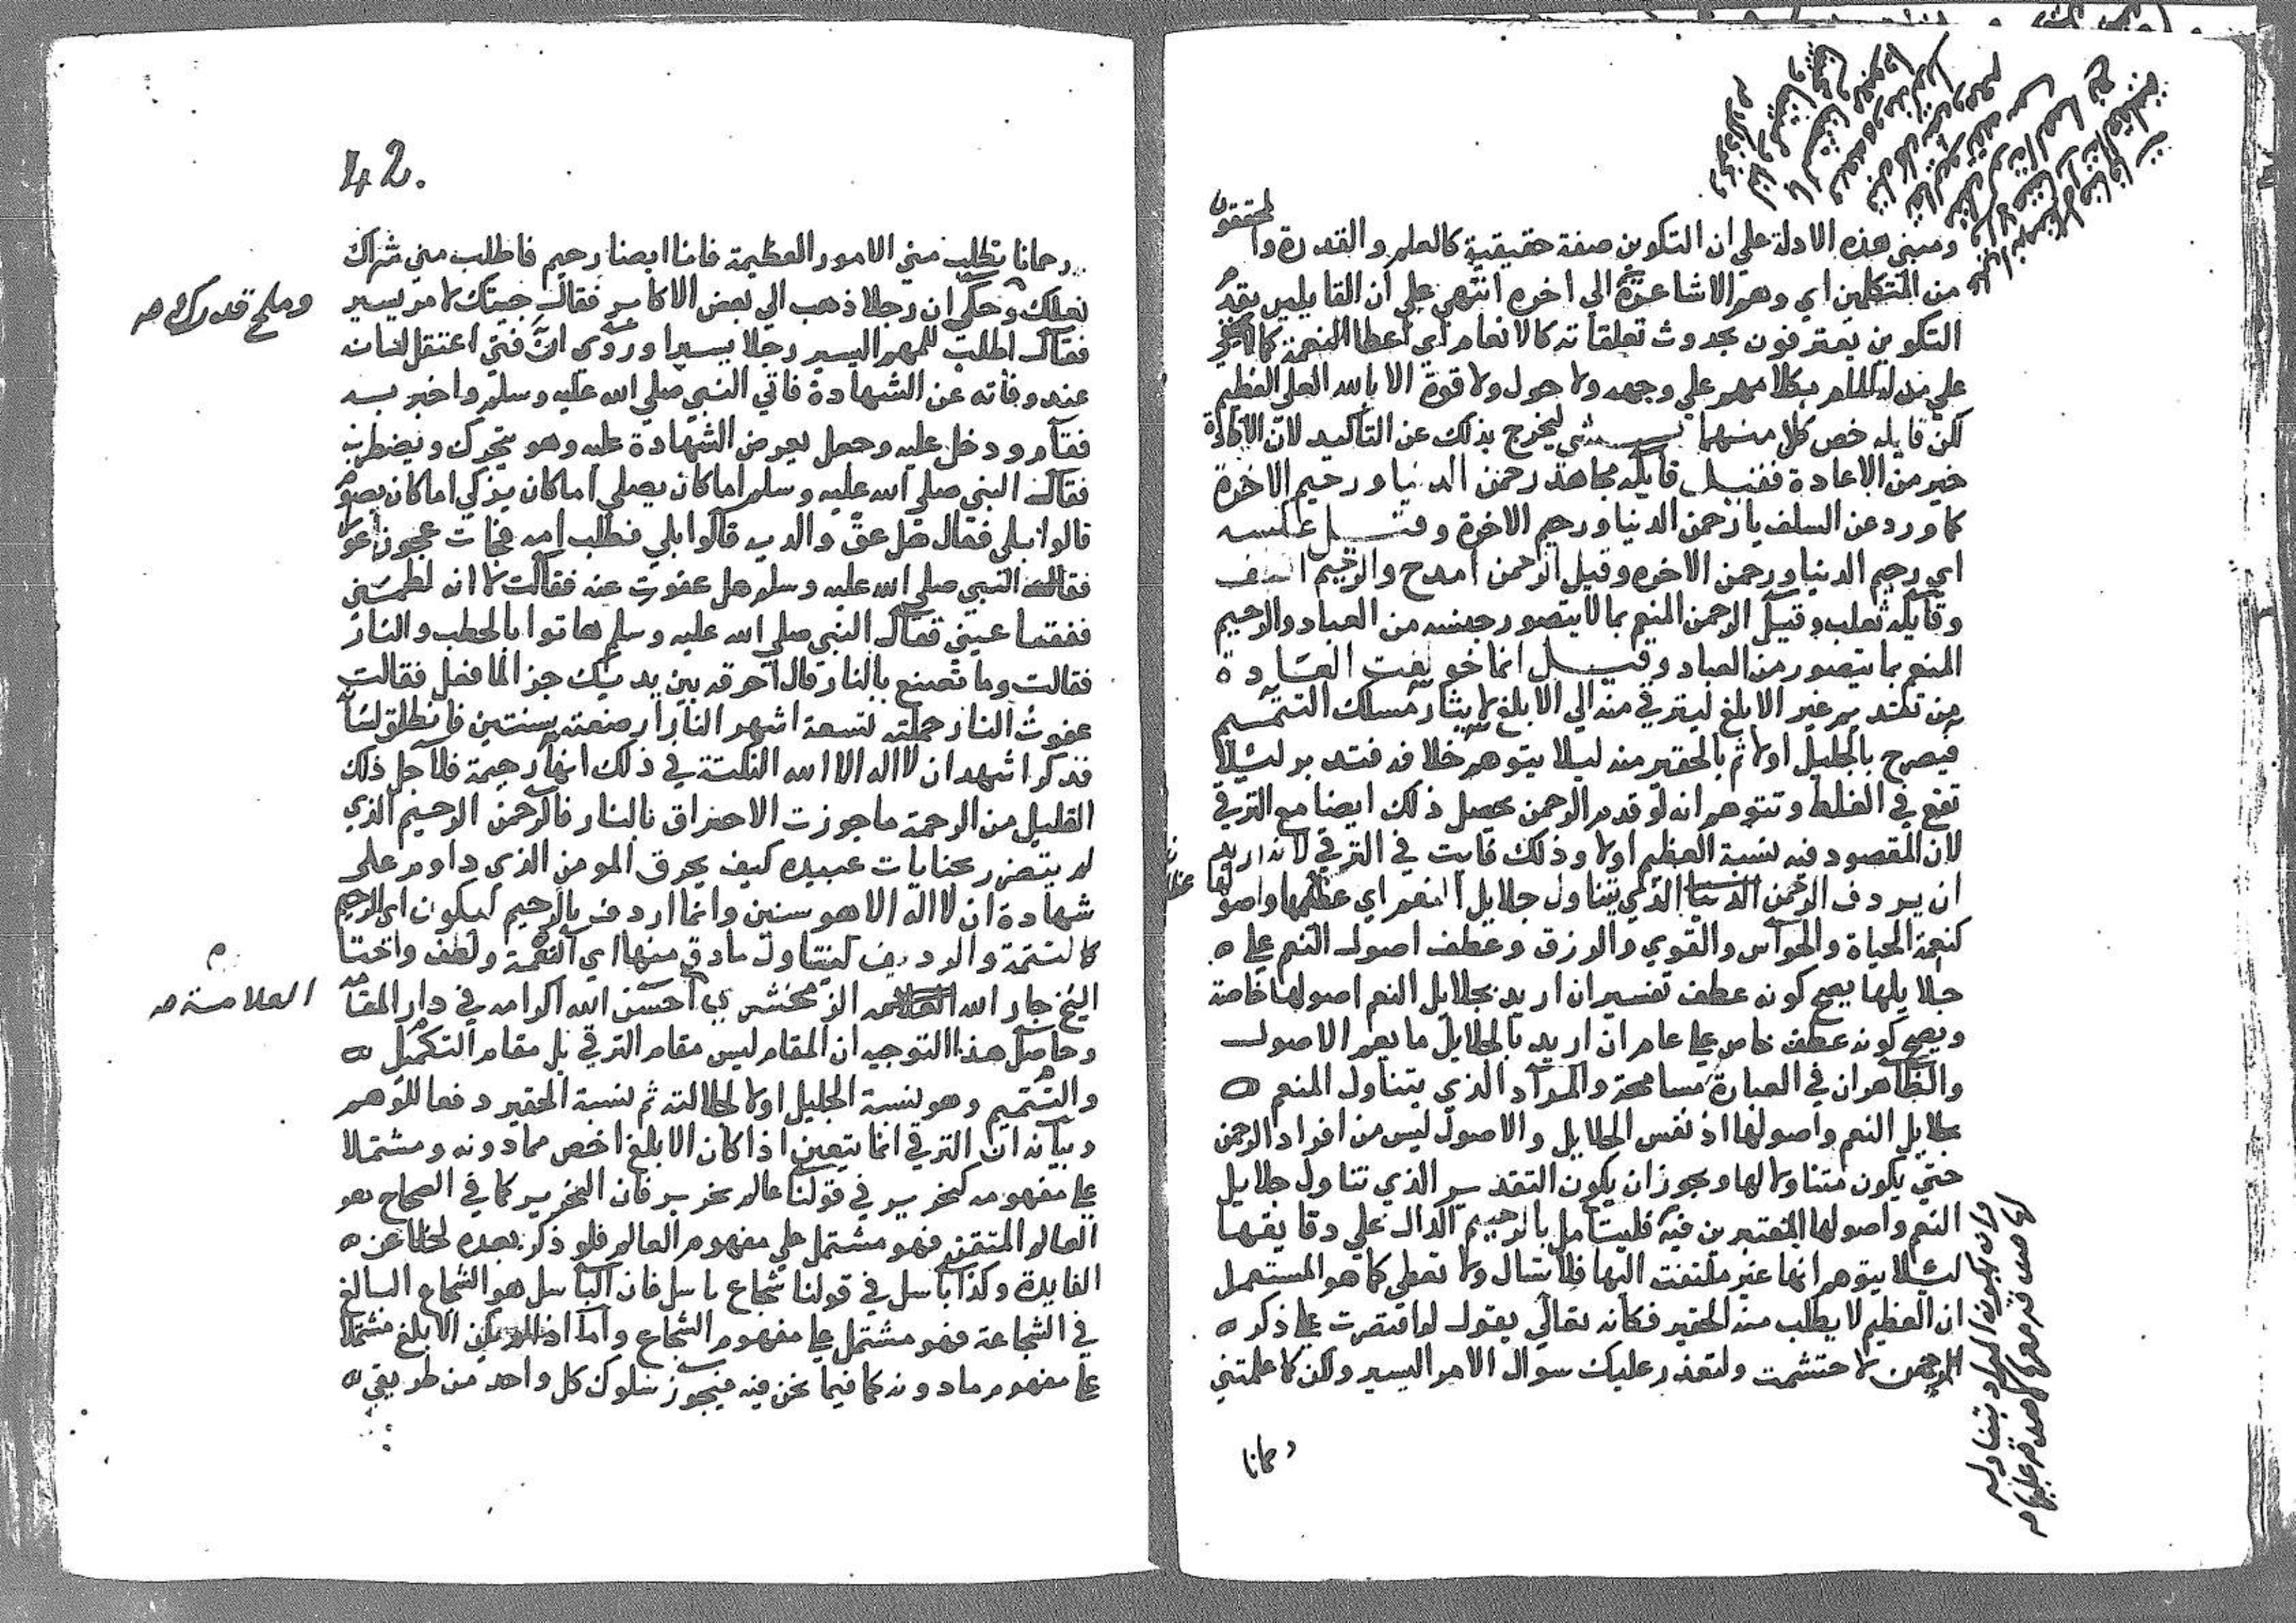 ومبني هذه الادلة علي ان التكوين صفة حقيقية كالعلم والقدرة والمحققون
من المتكلمين اي وهم الاشاعرة الي اخره انتهي علي ان القايلين بقدم
التكوين يعترفون بحدوث تعلقاته كالانعام اي اعطا النعمة كما لا يخفي
علي من له المام بكلامهم علي وجهه ولا حول ولا قوة الا بالله العلي العظيم
لكن قايله خص كلا منهما بشي ليخرج بذلك عن التاكيد لان الافادة
خير من الاعادة فقيل قايله مجاهد رحمن الدنيا ورحيم الاخرة
كما ورد عن السلف يا رحمن الدنيا ورحيم الاخرة وقيل عكسه
اي رحيم الدنيا ورحمن الاخره وقيل الرحمن امدح والرحيم
وقايله ثعلب وقيل الرحمن المنعم بما لا يتصور جنسه من العباد والرحيم
المنعم بما يتصور من العباد وقيل انما خولفت العادة
من تقديم غير الابلغ ليترقي منه الي الابلغ لايثار مسلك التتميم
فيصرح بالجليل اولا ثم بالحقير منه ليلا يتوهم خلافه فتدبر لئلا
تقع في الغلط وتتوهم انه لو قدم الرحمن يحصل ذلك ايضا مع الترقي
لان المقصود فيه نسبة العظيم اولا وذلك فايت في الترقي لانه اريد
ان يردف الرحمن الذي يتناول جلايل النعم اي عظمها واصولها
كنعمة الحياة والحواس والقوي والرزق وعطف اصول النعم علي
جلايلها يصح كونه عطف تفسير ان اريد بجلايل النعم اصولها خاصة
ويصح كونه عطف خاص علي عام ان اريد بالجلايل ما يعم الاصول
والظاهر ان في العبارة مسامحة والمراد الذي يتناول المنعم
بجلايل النعم واصولها اذ نفس الجلايل والاصول ليس من افراد الرحمن
حتي يكون متناولا لها ويجوز ان يكون التقدير الذي تناول جلايل
النعم واصولها المعتبرين فيه فليتامل بالرحيم الدال علي دقايقها
لئلا يتوهم انها غير ملتفت اليها فلا تسال ولا تعطي كما هو المستعمل
ان العظيم لا يطلب منه الحقير فكانه تعالي يقول لو اقتصرت علي ذكر
الرحمن لاحتشمت ولتعذر عليك سوال الامر اليسير ولكن كما علمتني
رحمانا
42.
رحمانا تطلب مني الامور العظيمة فانا ايضا رحيم فاطلب مني شراك
نعلك وحكي ان رجلا ذهب الي بعض الاكابر فقال جيتك لامر يسير
وملح قدرك صح
فقال اطلب للمهم اليسير رجلا يسيرا وروي ان فتي اعتقل لسانه
عند وفاته عن الشهادة فاتي النبي صلي الله عليه وسلم واخبر به
فقام ودخل عليه وجعل يعرض الشهادة عليه وهو يتحرك ويضطرب
فقال النبي صلي الله عليه وسلم اما كان يصلي اما كان يزكي اما كان يصوم
قالوا بلي فقال هل عق والديه قالوا بلي فطلب امه فجات عجوز عورا
فقال النبي صلي الله عليه وسلم هل عفوت عنه فقالت لا انه لطمني
ففقا عيني فقال النبي صلي الله عليه وسلم هاتوا بالحطب والنار
فقالت وما تصنع بالنار قال احرقه بين يديك جزا لما فعل فقالت
عفوت اللنار حملته تسعة اشهر اللنار ارضعته سنتين فانطلق لسانه
فذكر اشهد ان لا اله الا الله النكتة في ذلك انها رحيمة فلاجل ذلك
القليل من الرحمة ما جوزت الاحتراق بالنار فالرحمن الرحيم الذي
لم يتضرر بجنايات عبيده كيف يحرق المومن الذي داوم علي
شهادة ان لا اله الا هو سنين وانما اردف بالرحيم ليكون اي الرحيم
كالتتمة والرديف ليتناول مادق منها اي النعمة ولطف واختار
الشيخ جار الله العلامة الزمخشري احسن الله اكرامه في دار المقام
العلامة صح
وحاصل هذا التوجيه ان المقام ليس مقام الترقي بل مقام التكميل
والتتميم وهو نسبة الجليل اولا لجلالته ثم نسبة الحقير دفعا للوهم
وبيانه ان الترقي انما يتعين اذا كان الابلغ اخص مما دونه ومشتملا
علي مفهومه كنحرير في قولنا عالم نحرير فان النحرير كما في الصحاح هو
العالم المتقن فهو مشتمل علي مفهوم العالم فلو ذكر بعده لخلا عن
الفايدة وكذا باسل في قولنا شجاع باسل فان الباسل هو الشجاع البالغ
في الشجاعة فهو مشتمل علي مفهوم الشجاع واما اذا لم يكن الابلغ مشتملا
علي مفهوم مادونه كما فيما نحن فيه فيجوز سلوك كل واحد من طريقي